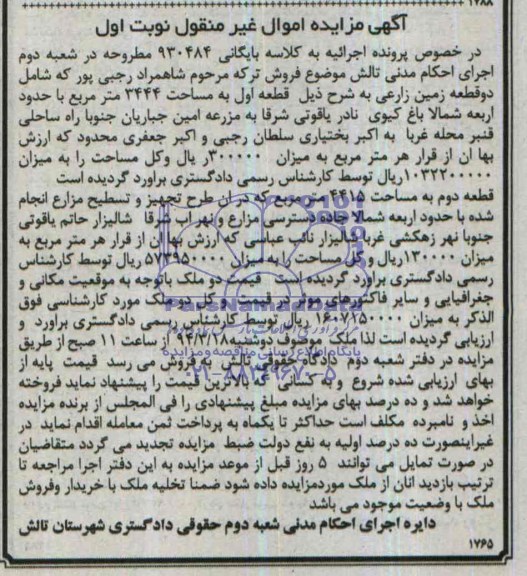 ۱۷۸۸
آگهی مزایده اموال غیر منقول نوبت اول
در خصوص پرونده اجرائیه به کلاسه بایگانی ۹۳۰۴۸۴ مطروحه در شعبه دوم
اجرای احکام مدنی تالش موضوع فروش ترکه مرحوم شاهمراد رجبی پور که شامل
دوقطعه زمین زارعی به شرح ذیل قطعه اول به مساحت ۳۴۴۴ متر مربع با حدود
اربعه شمالا باغ کیوی نادر یاقوتی شرقا به مزرعه امین جباریان جنوبا راه ساحلی
قنبر محله غربا به اکبر بختیاری سلطان رجبی و اکبر جعفری محدود که ارزش
بها ان از قرار هر متر مربع به میزان ۳۰۰۰۰۰ر یال وکل مساحت را به میزان
۱۰۳۲۲۰۰۰۰۰ریال توسط کارشناس رسمی دادگستری براورد گردیده است
قطعه دوم به مساحت ۴۴۱۵ متر مربع که در ان طرح تجهیز و تسطیح مزارع انجام
شده با حدود اربعه شمالا جاده دسترسی مزارع و نهر اب شرقا شالیزار حاتم یاقوتی
جنوبا نهر زهکشی غربا شالیزار نائب عباسی که ارزش بها ان از قرار هر متر مربع به
میزان ۱۳۰۰۰۰ریال و کل مساحت را به میزان ۵۷۳۹۵۰۰۰۰ ریال توسط کارشناس
رسمی دادگستری براورد گردیده است قیمت دو ملک باتوجه به موقعیت مکانی و
جغرافیایی و سایر فاکتورهای موثر در قیمت و کل دو ملک مورد کارشناسی فوق
الذکر به میزان ۱۶۰۷۱۵۰۰۰۰ ریال توسط کارشناس رسمی دادگستری براورد و
ارزیابی گردیده است لذا ملک موصوف دوشنبه ۹۴/۳/۱۸ از ساعت ۱۱ صبح از طریق
مزایده در دفتر شعبه دوم دادگاه حقوقی تالش به فروش می رسد قیمت پایه از
بهای ارزیابی شده شروع و به کسانی که بالاترین قیمت را پیشنهاد نماید فروخته
خواهد شد و ده درصد بهای مزایده مبلغ پیشنهادی را فی المجلس از برنده مزایده
اخذ و نامبرده مکلف است حداکثر تا یکماه به پرداخت ثمن معامله اقدام نماید در
غیراینصورت ده درصد اولیه به نفع دولت ضبط مزایده تجدید می گردد متقاضیان
در صورت تمایل می توانند ۵ روز قبل از موعد مزایده به این دفتر اجرا مراجعه تا
ترتیب بازدید انان از ملک موردمزایده داده شود ضمنا تخلیه ملک با خریدار وفروش
ملک با وضعیت موجود می باشد
دایره اجرای احکام مدنی شعبه دوم حقوقی دادگستری شهرستان تالش
۱۷۶۵
ParsNamadData
پایگاه اطلاع رسانی مناقصه و مزایده
۰۲۱-۸۸۳۴۹۶۷۰-۵